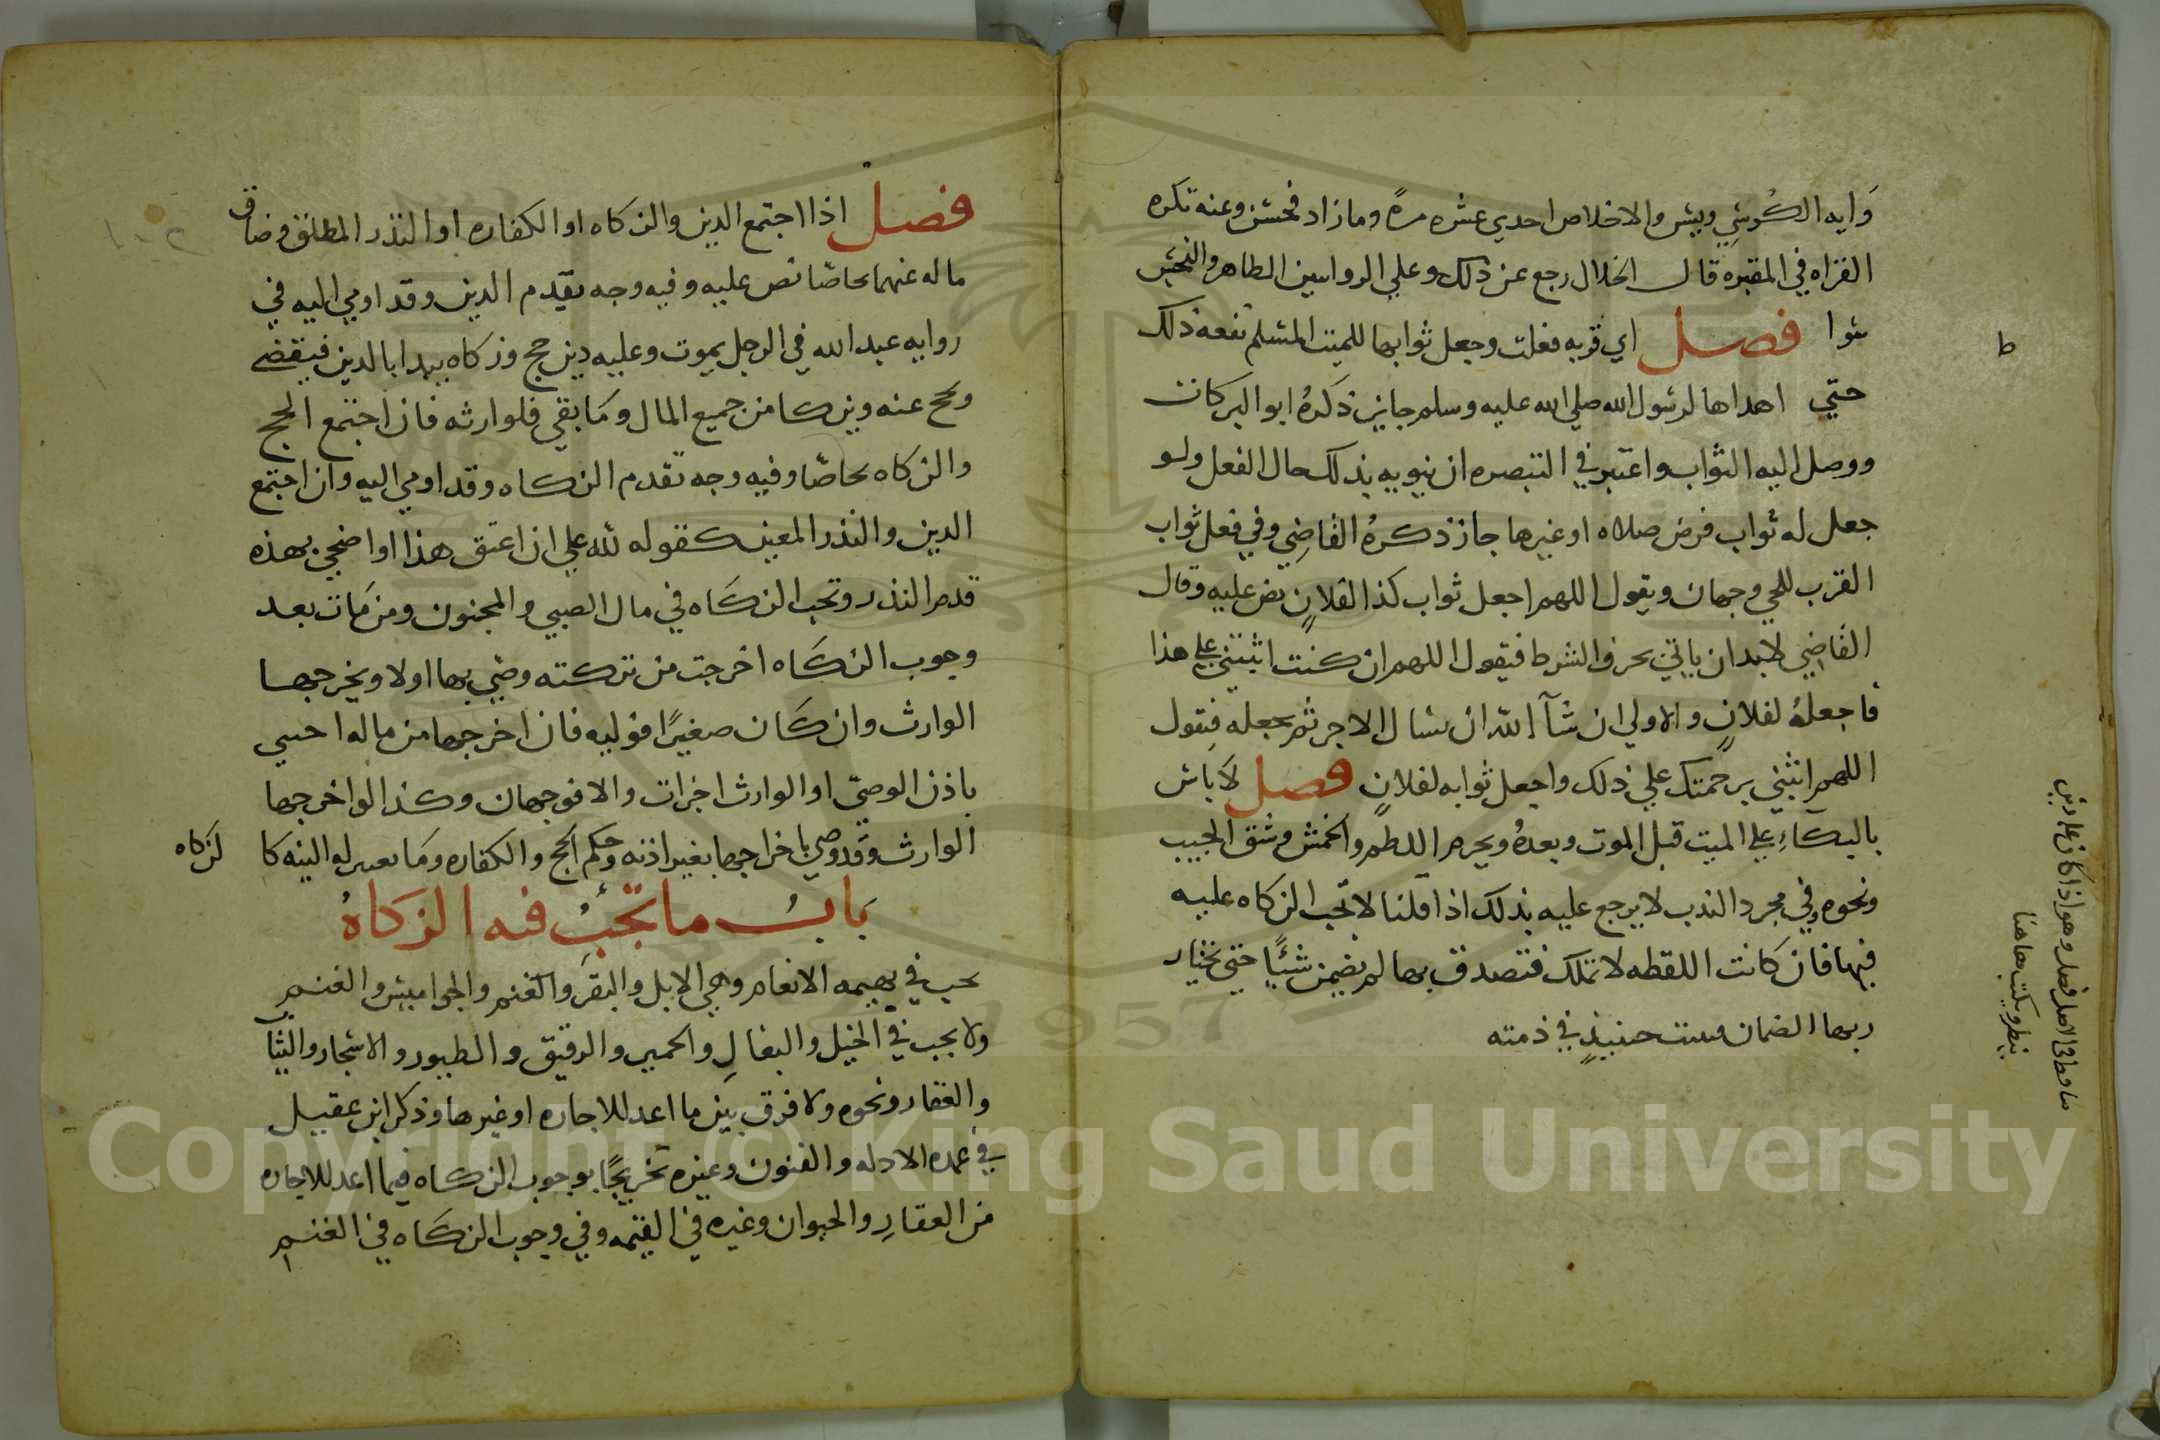 وايه الكرسي ويس والاخلاص احدي عشره مرةً وما زاد فحسن وعنه تكره
القراه في المقبره قال الخلال رجع عن ذلك وعلي الروايتين الطاهر والنجس
سوا فصل اي قربه فعلت وجعل ثوابها للميت المسلم نفعه ذلك
حتي اهداها لرسول الله صلي الله عليه وسلم جايز ذكرهُ ابو البركات
ووصل اليه الثواب واعتبر في التبصره ان ينويه بذلك حال الفعل ولو
جعل له ثواب فرض صلاه او غيرها جاز ذكرهُ القاضي وفي فعل ثواب
القرب للحي وجهان ويقول اللهم اجعل ثواب كذا لفلانٍ نص عليه وقال
القاضي لا بد ان ياتي بحرف الشرط فيقول اللهم ان كنت اثبتني علي هذا
فاجعلهُ لفلانٍ والاولي ان شآ الله ان يسال الاجر ثم يجعله فيقول
اللهم اثبني برحمتك علي ذلك واجعل ثوابه لفلانٍ فصل لا باس
بالبكآءِ علي الميت قبل الموت وبعدهُ ويحرم اللطم والخمش وشق الجيب
ونحوه وفي مجرد الندب لا يرجع عليه بذلك اذا قلنا لا تجب الزكاه عليه
فيها فان كانت اللقطه لا تملك فتصدق بها لم يضمن شئًا حتي يختار
ربها الضمان فيثبت حينيذٍ في ذمته
ط
وهو اذا كان علي دين
ينظر ويكتب هاهنا
١٠٢
فصل اذا اجتمع الدين والزكاه او الكفاره او النذر المطلق وضاق
ماله عنهما تحاصّا نص عليه وفيه وجه تقدم الدين وقد اومي اليه في
روايه عبد الله في الرجل يموت وعليه دين حج وزكاه يبدا بالدين فيقضي
ويحج عنه ويزكا من جميع المال وما بقي فلوارثه فان اجتمع الحج
والزكاه تحاصّا وفيه وجه تقدم الزكاه وقد اومي اليه وان اجتمع
الدين والنذر المعين كقوله لله علي ان اعتق هذا او اضحي بهذه
قدم النذر وتجب الزكاه في مال الصبي والمجنون ومن مات بعد
وجوب الزكاه اخرجت من تركته وصّي بها اولا ويخرجها
الوارث وان كان صغيرًا فوليه فان اخرجها من ماله اجنبي
باذن الوصيّ او الوارث اجزات والا فوجهان وكذا لو اخرجها
الوارث وقد وصي باخراجها بغير اذنه وحكم الحج والكفاره وما يعتبر له النيه كا لزكاه
بَابُ ما تجبُ فيه الزكاهُ
تجب في بهيمه الانعام وهي الابل والبقر والغنم والجواميس والغنم
ولا تجب في الخيل والبغالِ والحمير والرقيق والطيور والاشجار والثيا
والعقار ونحوه ولا فرق بين ما اعد للاجاره او غيرها وذكر ابن عقيل
في عمده الادله والفنون وغيره تخريجًا بوجوب الزكاه فيما اعد للاجاره
من العقارِ والحيوان وغيره في القيمه وفي وجوب الزكاه في الغنم
Copyright © King Saud University
1957